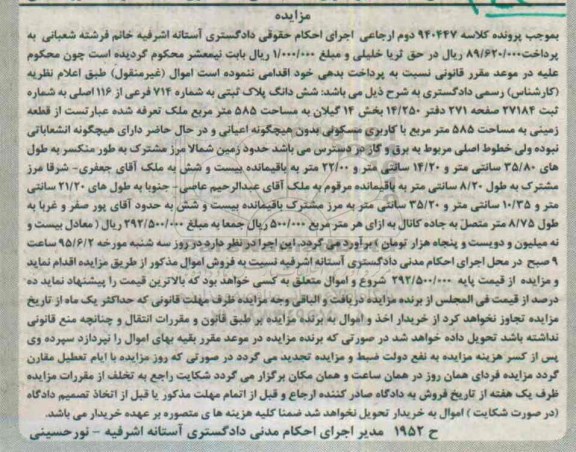 مزایده
بموجب پرونده کلاسه ۹۴۰۴۴۷ دوم ارجاعی اجرای احکام حقوقی دادگستری آستانه اشرفیه خانم فرشته شعبانی به
پرداخت ۸۹/۶۲۰/۰۰۰ ریال در حق ثریا خلیلی و مبلغ ۱/۰۰۰/۰۰۰ ریال بابت نیمعشر محکوم گردیده است چون محکوم
علیه در موعد مقرر قانونی نسبت به پرداخت بدهی خود اقدامی ننموده است اموال (غیرمنقول) طبق اعلام نظریه
(کارشناس) رسمی دادگستری به شرح ذیل می باشد: شش دانگ پلاک ثبتی به شماره ۷۱۴ فرعی از ۱۱۶ اصلی به شماره
ثبت ۲۷۱۸۴ صفحه ۲۷۱ دفتر ۱۴/۲۵۰ بخش ۱۴ گیلان به مساحت ۵۸۵ متر مربع ملک تعرفه شده عبارتست از قطعه
زمینی به مساحت ۵۸۵ متر مربع با کاربری مسکونی بدون هیچگونه اعیانی و در حال حاضر دارای هیچگونه انشعاباتی
نبوده ولی خطوط اصلی مربوط به برق و گاز در دسترس می باشد حدود زمین شمالا مرز مشترک به طور منکسر به طول
های ۳۵/۸۰ سانتی متر و ۱۴/۲۰ سانتی متر و ۲۲/۰۰ متر به باقیمانده بیست و شش به ملک آقای جعفری- شرقا مرز
مشترک به طول ۸/۲۰ سانتی متر به باقیمانده مرقوم به ملک آقای عبدالرحیم عاصی- جنوبا به طول های ۲۱/۲۰ سانتی
متر و ۱۰/۳۵ سانتی متر و ۳۵/۲۰ سانتی متر به مرز مشترک باقیمانده بیست و شش به حدود آقای پور صفر و غربا به
طول ۸/۷۵ متر متصل به جاده کانال به ازای هر متر مربع ۵۰۰/۰۰۰ ریال جمعا به مبلغ ۲۹۲/۵۰۰/۰۰۰ ریال (معادل بیست و
نه میلیون و دویست و پنجاه هزار تومان) برآورد می گردد. این اجرا در نظر دارد در روز سه شنبه مورخه ۹۵/۶/۲ ساعت
۹ صبح در محل اجرای احکام مدنی دادگستری آستانه اشرفیه نسبت به فروش اموال مذکور از طریق مزایده اقدام نماید
و مزایده از قیمت پایه ۲۹۲/۵۰۰/۰۰۰ شروع و اموال متعلق به کسی خواهد بود که بالاترین قیمت را پیشنهاد نماید ده
درصد از قیمت فی المجلس از برنده مزایده دریافت و الباقی وجه مزایده ظرف مهلت قانونی که حداکثر یک ماه از تاریخ
مزایده تجاوز نخواهد کرد از خریدار اخذ و اموال به برنده مزایده بر طبق قانون و مقررات انتقال و چنانچه منع قانونی
نداشته باشد تحویل داده خواهد شد در صورتی که برنده مزایده در موعد مقرر بقیه بهای اموال را نپردازد سپرده وی
پس از کسر هزینه مزایده به نفع دولت ضبط و مزایده تجدید می گردد در صورتی که روز مزایده با ایام تعطیل مقارن
گردد مزایده فردای همان روز در همان ساعت و همان مکان برگزار می گردد شکایت راجع به تخلف از مقررات مزایده
ظرف یک هفته از تاریخ فروش به دادگاه صادر کننده ارجاع و قبل از اتمام مهلت مذکور یا قبل از اتخاذ تصمیم دادگاه
(در صورت شکایت) اموال به خریدار تحویل نخواهد شد ضمنا کلیه هزینه های متصوره بر عهده خریدار می باشد.
ح ۱۹۵۲ مدیر اجرای احکام مدنی دادگستری آستانه اشرفیه - نورحسینی